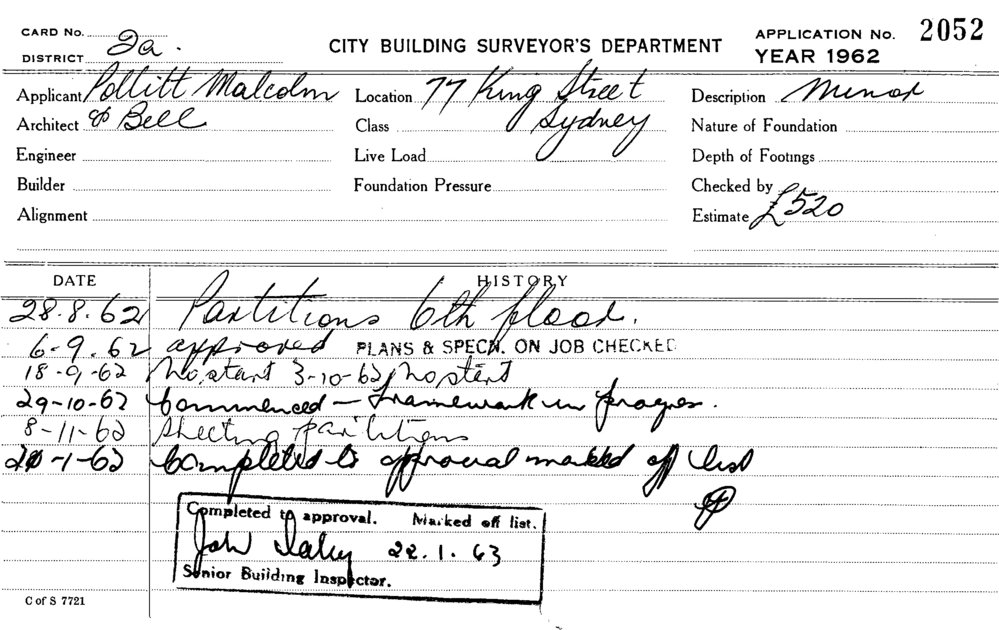 CARD No. 2a.
DISTRICT
CITY BUILDING SURVEYOR'S DEPARTMENT
APPLICATION No. 2052
YEAR 1962
Applicant Pollitt Malcolm
Location 77 King Street
Description Minor
Architect & Bell
Class Sydney
Nature of Foundation
Engineer
Live Load
Depth of Footings
Builder
Foundation Pressure
Checked by
Alignment
Estimate £520
DATE HISTORY
28.8.62 Partitions 6th floor.
6-9.62 approved PLANS & SPECN. ON JOB CHECKED
18-9-62 No start 3-10-62 No start
29-10-62 Commenced - Framework in progress.
8-11-62 Sheeting partitions
-1-63 Completed to approval marked off list
Completed to approval. Marked off list.
22.1.63
Senior Building Inspector.
C of S 7721